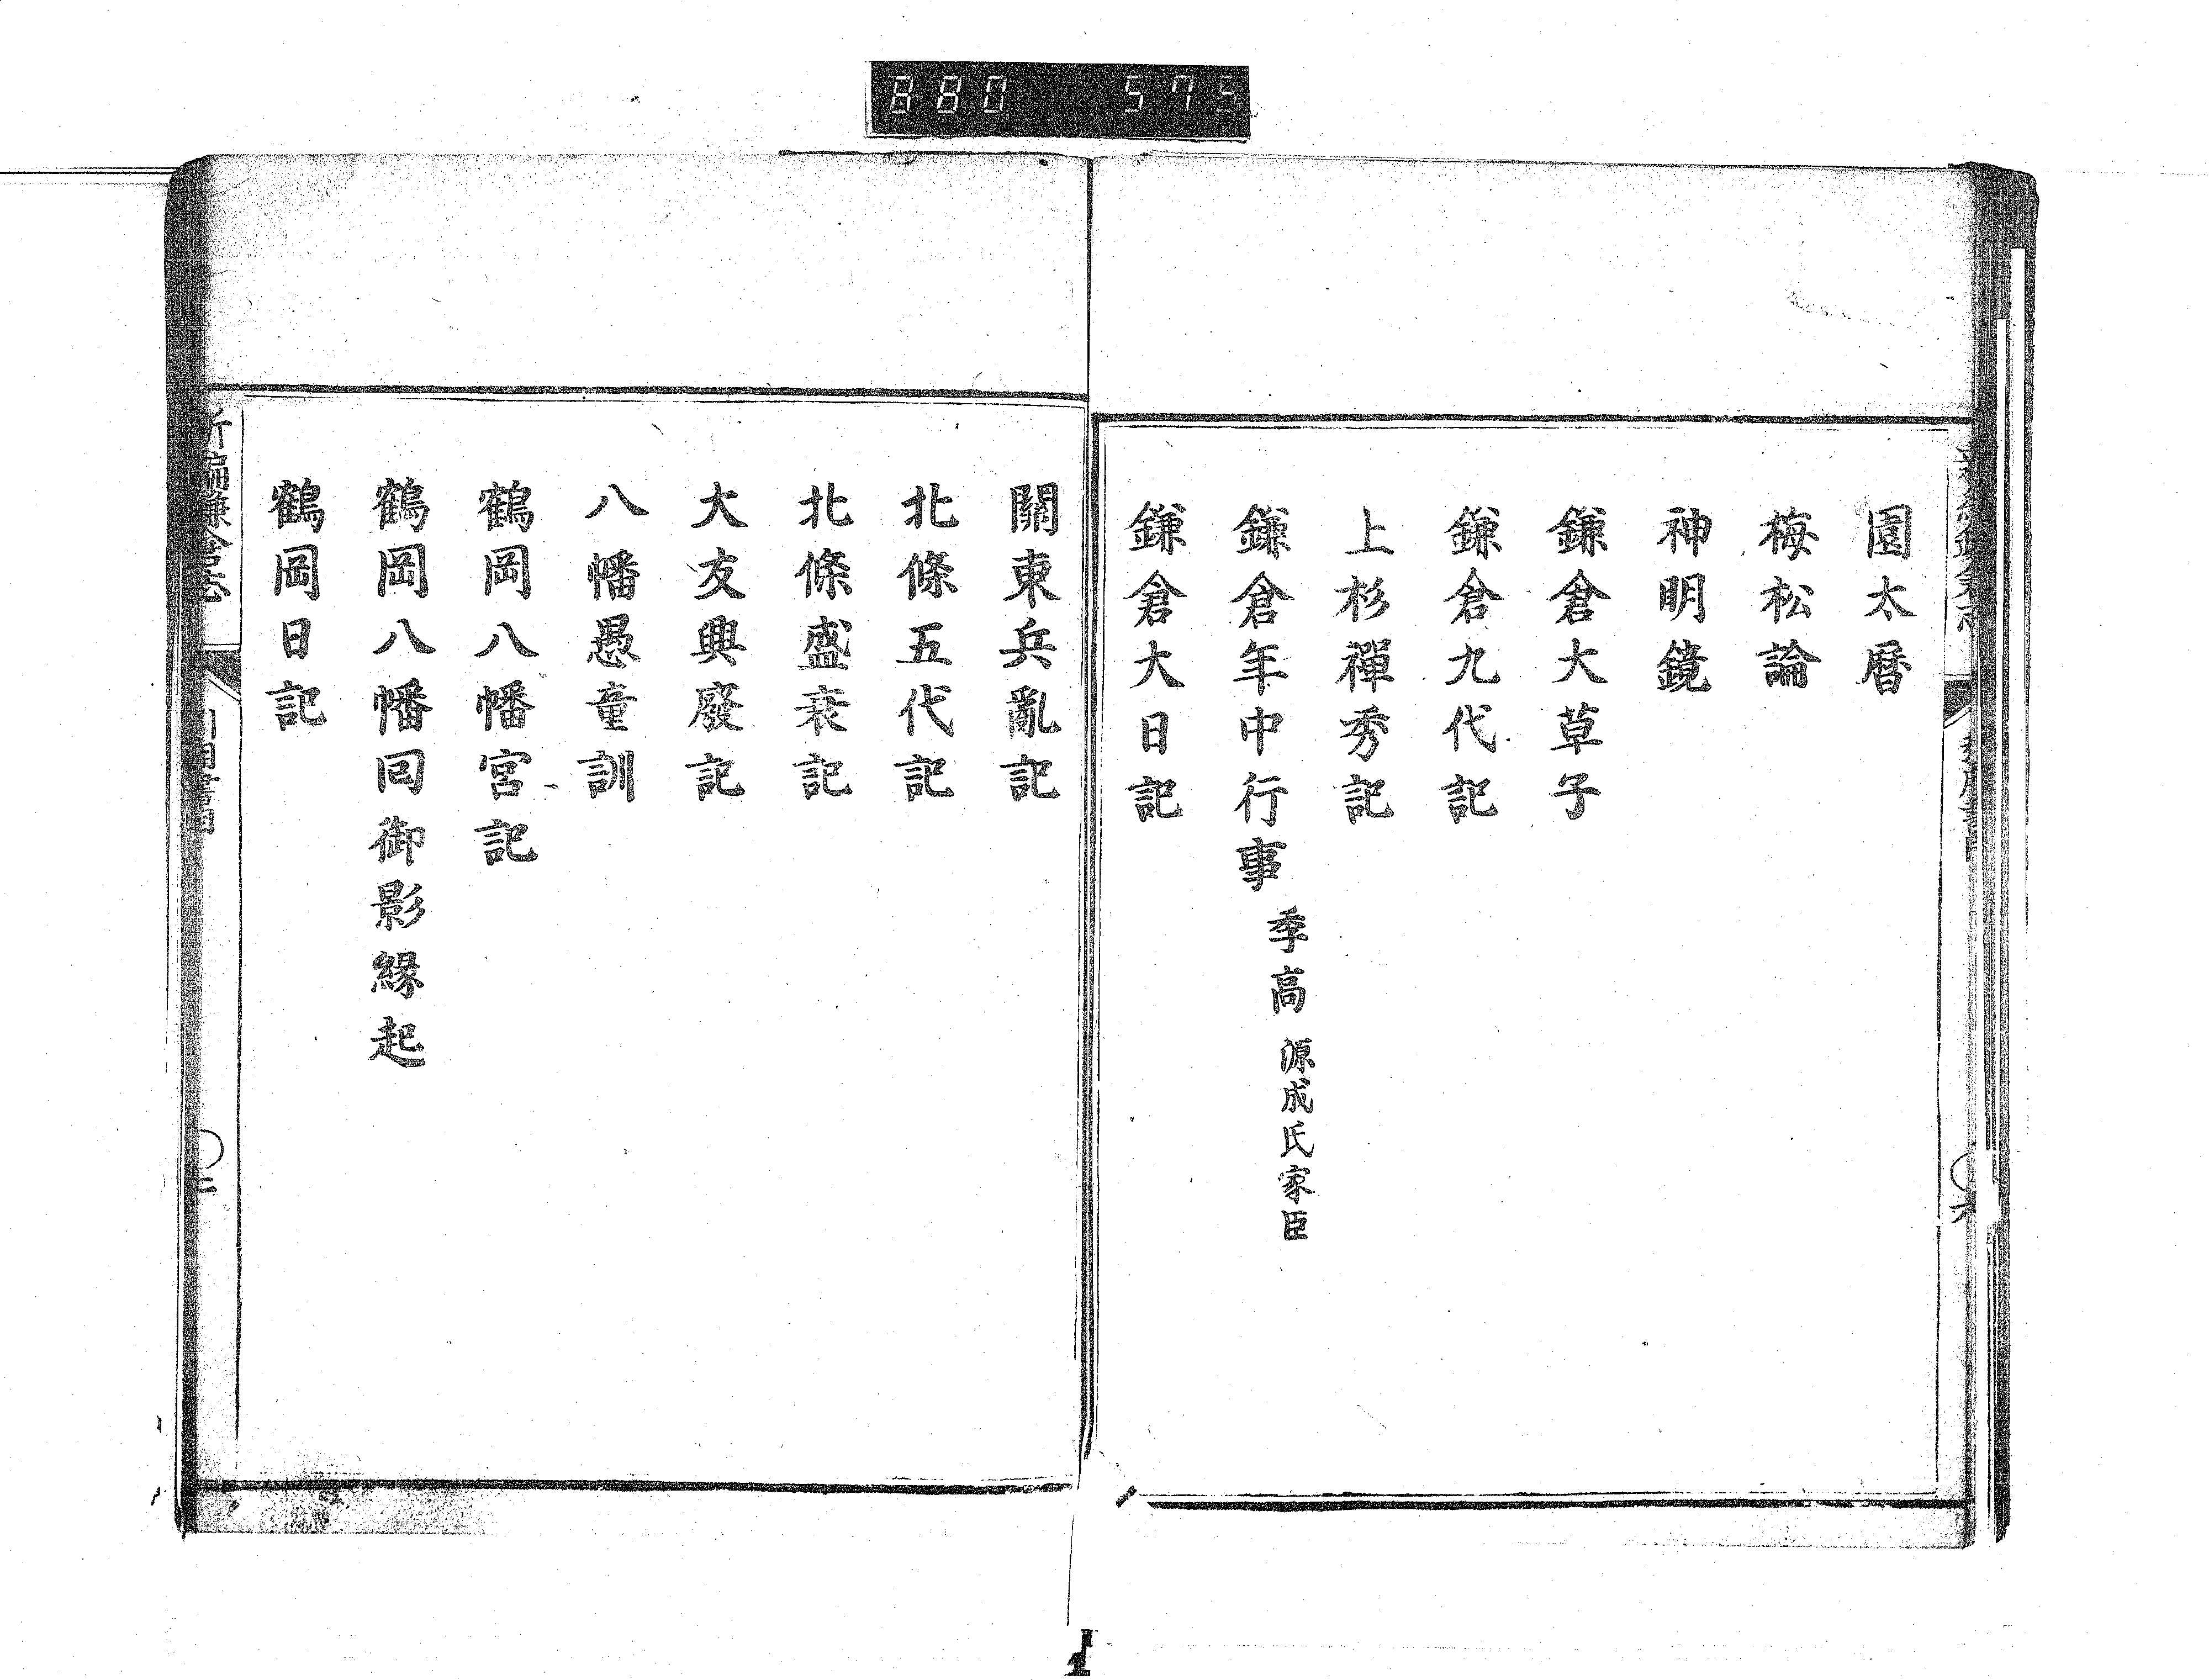 880 575
園太暦
梅松論
神明鏡
鎌倉大草子
鎌倉九代記
上杉禪秀記
鎌倉年中行事 季高 源成氏家臣
鎌倉大日記
關東兵亂記
北條五代記
北條盛衰記
大友興廢記
八幡愚童訓
鶴岡八幡宮記
鶴岡八幡囘御影緣起
鶴岡日記
新編鎌倉志